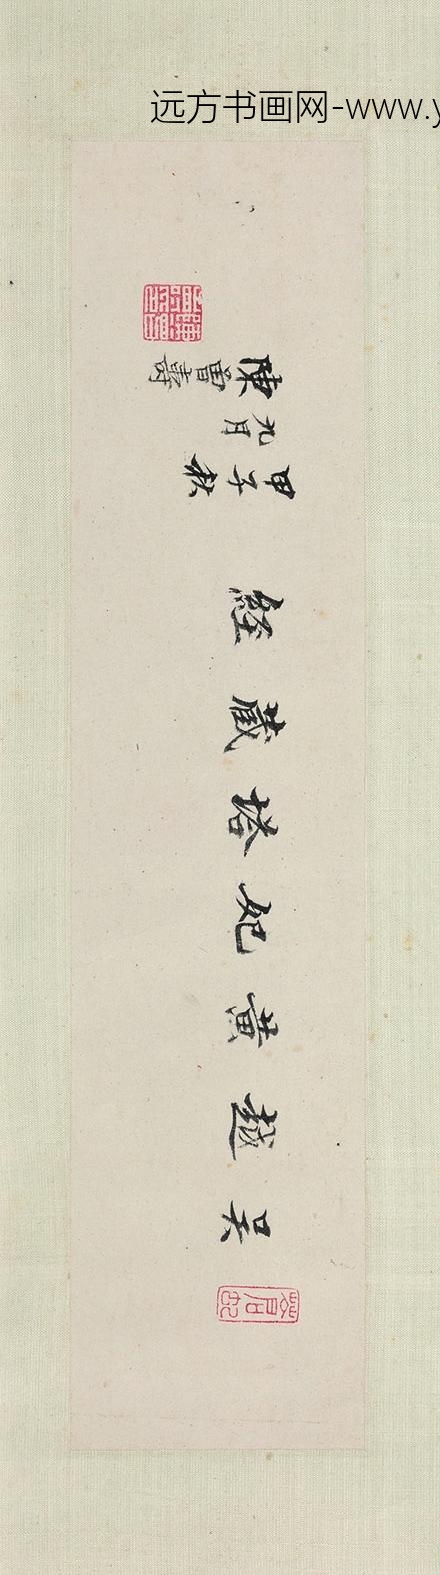 远方书画网-www.y
吳越黃妃塔藏經
甲子秋
九月
陳曾壽